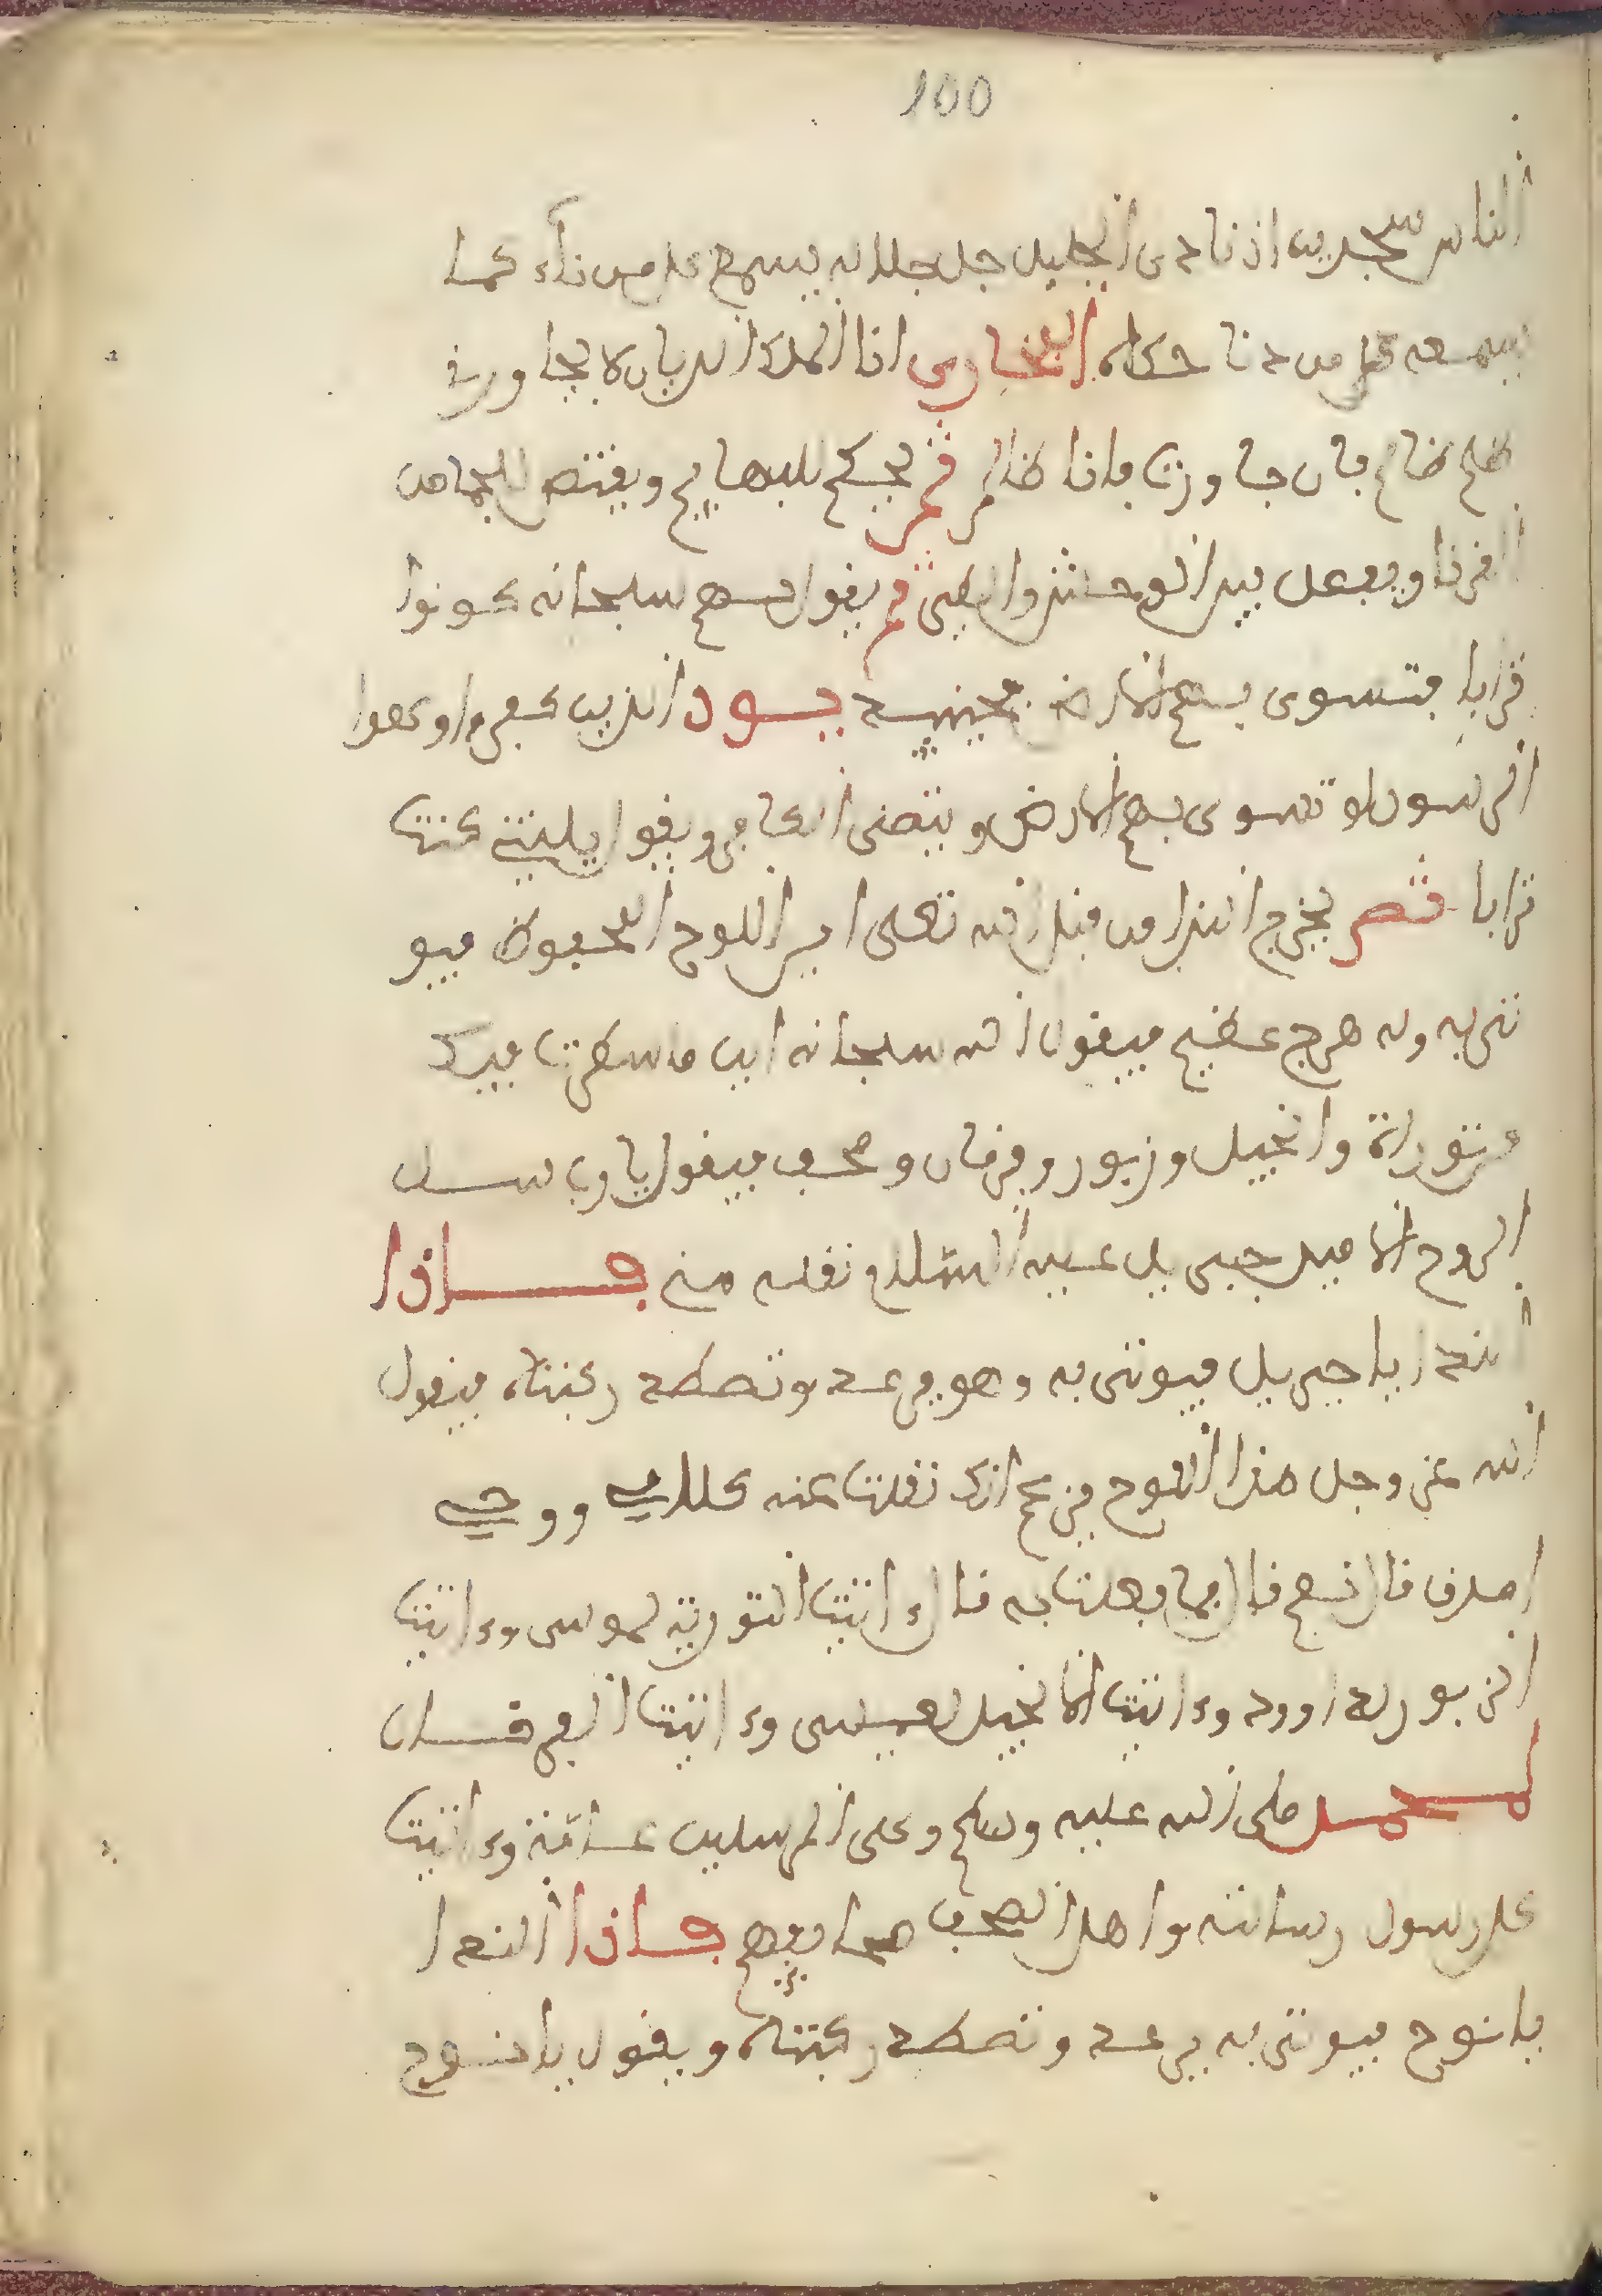 100
الناس سجدين اذ نادى الجليل جل جلاله يسمع كل من ناء كما
يسمعه كل من دنا حكاه البخارى انا الملك الديان لا يجاوزنى
ظلم ظالم فان جاوزنى فانا ظالم ثم يحكم للبهايم ويقتص للجما من
القرنا ويفصل بين الوحش والطير ثم يقول لهم سبحانه كونوا
ترابا فتسوى بهم الارض فحينئيذ يود الذين كفروا وعصوا
الرسول لو تسوى بهم الارض ويتمنى الكافر ويقول يليتنى كنت
ترابا ثم يخرج الندا من قبل الله تعلى اين اللوح المحفوظ فيو
تى به وله هرج عظيم فيقول الله سبحانه اين ما سطرت فيك
من توراة وانجيل وزبور وفرقان وصحف فيقول يا رب سل
الروح الامين جبريل عليه السلام نقله منى فاذا
النـدا يا جبريل فيوتى به وهو يرعد وتصطك ركبتاه فيقول
الله عز وجل هذا اللوح يزعم انك نقلت عنه كلامى ووحيى
اصدق قال نعم قال فما فعلت به قال ءاتيت التورية لموسى وءاتيت
الزبور لداوود وءاتيت الانجيل لعيسى وءاتيت الفرقان
لمحمد صلى الله عليه وسلم وعلى المرسلين عامة وءاتيت
كل رسول رسالته واهل الصحف صحايفهم فاذا النـدا
يا نوح فيوتى به يرعد وتصطك ركبتاه ويقول يا نوح